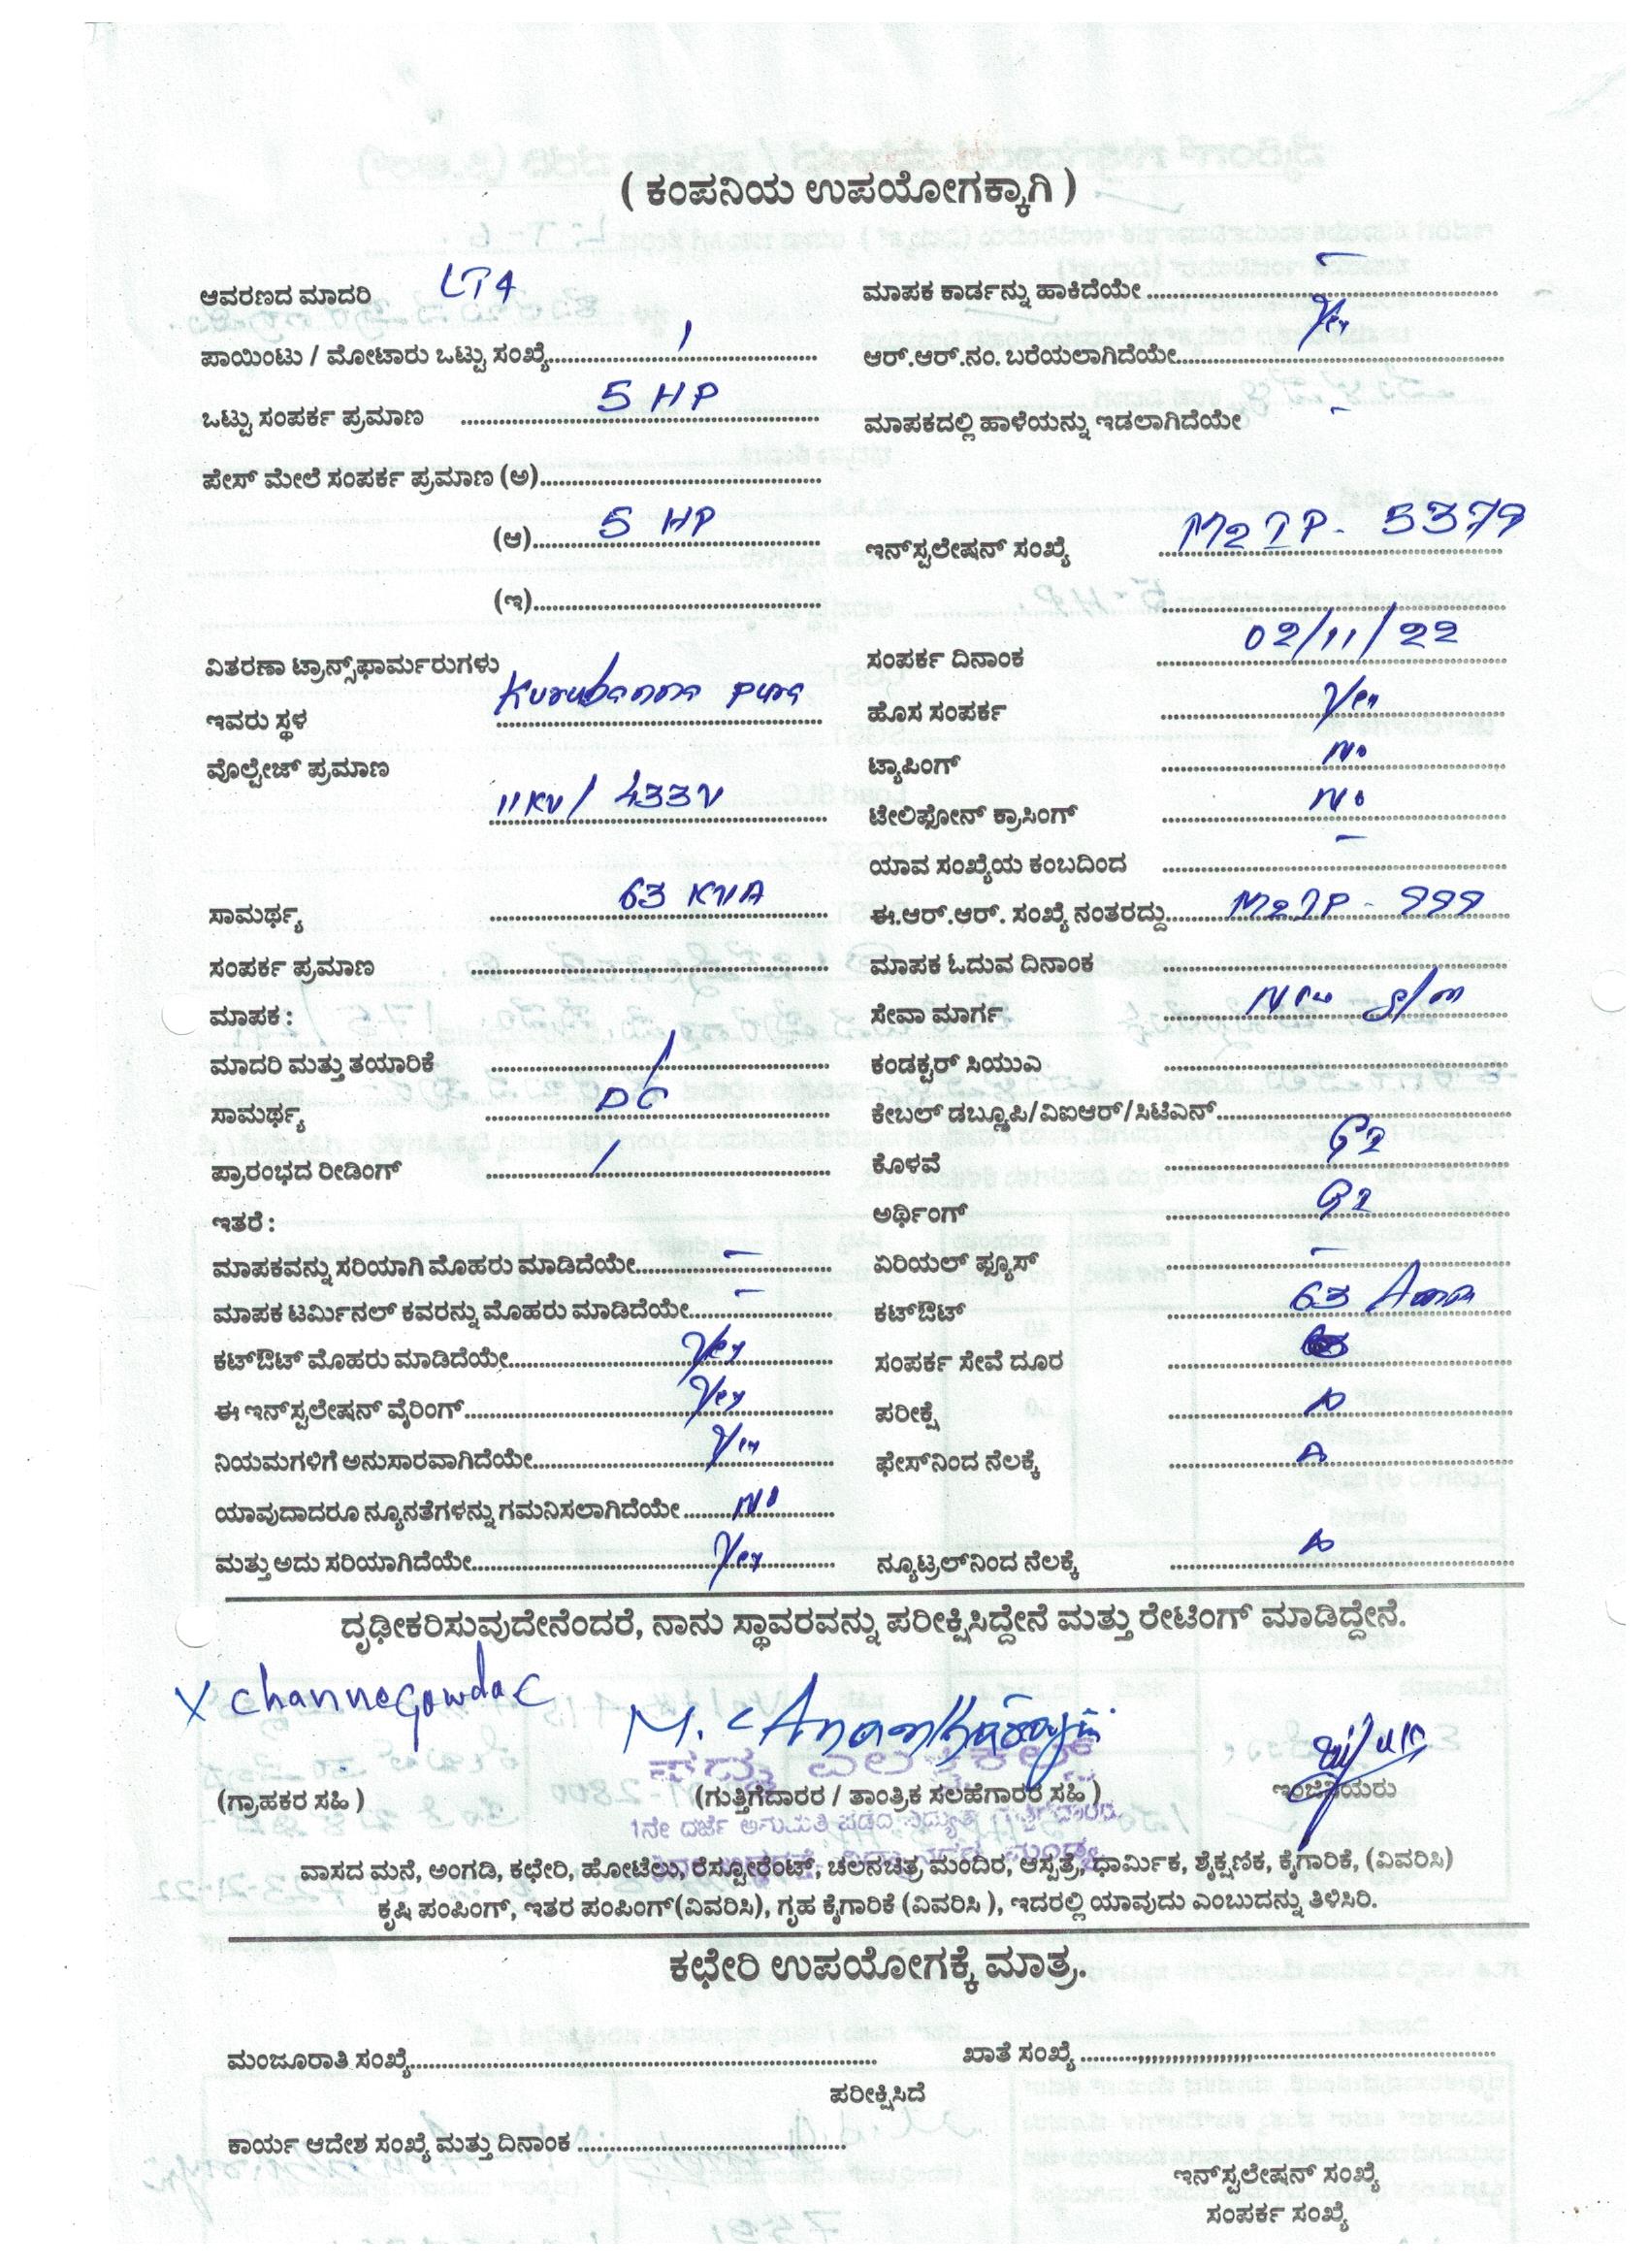 ( ಕಂಪನಿಯ ಉಪಯೋಗಕ್ಕಾಗಿ )
ಆವರಣದ ಮಾದರಿ LT4
ಮಾಪಕ ಕಾರ್ಡನ್ನು ಹಾಕಿದೆಯೇ –
ಪಾಯಿಂಟು / ಮೋಟಾರು ಒಟ್ಟು ಸಂಖ್ಯೆ 1
ಆರ್.ಆರ್.ನಂ. ಬರೆಯಲಾಗಿದೆಯೇ Yes
ಒಟ್ಟು ಸಂಪರ್ಕ ಪ್ರಮಾಣ 5 HP
ಮಾಪಕದಲ್ಲಿ ಹಾಳೆಯನ್ನು ಇಡಲಾಗಿದೆಯೇ –
ಪೇಸ್ ಮೇಲೆ ಸಂಪರ್ಕ ಪ್ರಮಾಣ (ಅ)
(ಆ) 5 HP
ಇನ್‌ಸ್ಟಲೇಷನ್ ಸಂಖ್ಯೆ M2IP- 5379
(ಇ)
ವಿತರಣಾ ಟ್ರಾನ್ಸ್‌ಫಾರ್ಮರುಗಳು
ಸಂಪರ್ಕ ದಿನಾಂಕ 02/11/22
ಇವರು ಸ್ಥಳ Kurubanna pura
ಹೊಸ ಸಂಪರ್ಕ Yes
ವೊಲ್ಟೇಜ್ ಪ್ರಮಾಣ 11KV/ 433V
ಟ್ಯಾಪಿಂಗ್ No
ಟೇಲಿಫೋನ್ ಕ್ರಾಸಿಂಗ್ No
ಯಾವ ಸಂಖ್ಯೆಯ ಕಂಬದಿಂದ –
ಸಾಮರ್ಥ್ಯ 63 KVA
ಈ.ಆರ್.ಆರ್. ಸಂಖ್ಯೆ ನಂತರದ್ದು M2IP- 999
ಸಂಪರ್ಕ ಪ್ರಮಾಣ
ಮಾಪಕ ಓದುವ ದಿನಾಂಕ
ಮಾಪಕ :
ಸೇವಾ ಮಾರ್ಗ New S/m
ಮಾದರಿ ಮತ್ತು ತಯಾರಿಕೆ /
ಕಂಡಕ್ಟರ್ ಸಿಯುಎ
ಸಾಮರ್ಥ್ಯ DC
ಕೇಬಲ್ ಡಬ್ಲ್ಯೂಪಿ/ವಿಐಆರ್/ಸಿಟಿಎನ್
ಪ್ರಾರಂಭದ ರೀಡಿಂಗ್ /
ಕೊಳವೆ G2
ಇತರೆ :
ಅರ್ಥಿಂಗ್ G2
ಮಾಪಕವನ್ನು ಸರಿಯಾಗಿ ಮೊಹರು ಮಾಡಿದೆಯೇ –
ಏರಿಯಲ್ ಫ್ಯೂಸ್ –
ಮಾಪಕ ಟರ್ಮಿನಲ್ ಕವರನ್ನು ಮೊಹರು ಮಾಡಿದೆಯೇ –
ಕಟ್‌ಔಟ್ 63 Amp
ಕಟ್‌ಔಟ್ ಮೊಹರು ಮಾಡಿದೆಯೇ Yes
ಸಂಪರ್ಕ ಸೇವೆ ದೂರ
ಈ ಇನ್‌ಸ್ಟಲೇಷನ್ ವೈರಿಂಗ್ Yes
ಪರೀಕ್ಷೆ
ನಿಯಮಗಳಿಗೆ ಅನುಸಾರವಾಗಿದೆಯೇ Yes
ಫೇಸ್‌ನಿಂದ ನೆಲಕ್ಕೆ
ಯಾವುದಾದರೂ ನ್ಯೂನತೆಗಳನ್ನು ಗಮನಿಸಲಾಗಿದೆಯೇ No
ಮತ್ತು ಅದು ಸರಿಯಾಗಿದೆಯೇ Yes
ನ್ಯೂಟ್ರಲ್‌ನಿಂದ ನೆಲಕ್ಕೆ
ದೃಢೀಕರಿಸುವುದೇನೆಂದರೆ, ನಾನು ಸ್ಥಾವರವನ್ನು ಪರೀಕ್ಷಿಸಿದ್ದೇನೆ ಮತ್ತು ರೇಟಿಂಗ್ ಮಾಡಿದ್ದೇನೆ.
X Channegowda C
(ಗ್ರಾಹಕರ ಸಹಿ )
(ಗುತ್ತಿಗೆದಾರರ / ತಾಂತ್ರಿಕ ಸಲಹೆಗಾರರ ಸಹಿ )
ಇಂಜಿನಿಯರು
1ನೇ ದರ್ಜೆ ಅನುಮತಿ ಪಡೆದ ವಿದ್ಯುತ್
ವಾಸದ ಮನೆ, ಅಂಗಡಿ, ಕಛೇರಿ, ಹೋಟೆಲು, ರೆಸ್ಟೋರೆಂಟ್, ಚಲನಚಿತ್ರ ಮಂದಿರ, ಆಸ್ಪತ್ರೆ, ಧಾರ್ಮಿಕ, ಶೈಕ್ಷಣಿಕ, ಕೈಗಾರಿಕೆ, (ವಿವರಿಸಿ)
ಕೃಷಿ ಪಂಪಿಂಗ್, ಇತರ ಪಂಪಿಂಗ್(ವಿವರಿಸಿ), ಗೃಹ ಕೈಗಾರಿಕೆ (ವಿವರಿಸಿ ), ಇದರಲ್ಲಿ ಯಾವುದು ಎಂಬುದನ್ನು ತಿಳಿಸಿರಿ.
ಕಛೇರಿ ಉಪಯೋಗಕ್ಕೆ ಮಾತ್ರ.
ಮಂಜೂರಾತಿ ಸಂಖ್ಯೆ
ಖಾತೆ ಸಂಖ್ಯೆ
ಪರೀಕ್ಷಿಸಿದೆ
ಕಾರ್ಯ ಆದೇಶ ಸಂಖ್ಯೆ ಮತ್ತು ದಿನಾಂಕ
ಇನ್‌ಸ್ಟಲೇಷನ್ ಸಂಖ್ಯೆ
ಸಂಪರ್ಕ ಸಂಖ್ಯೆ